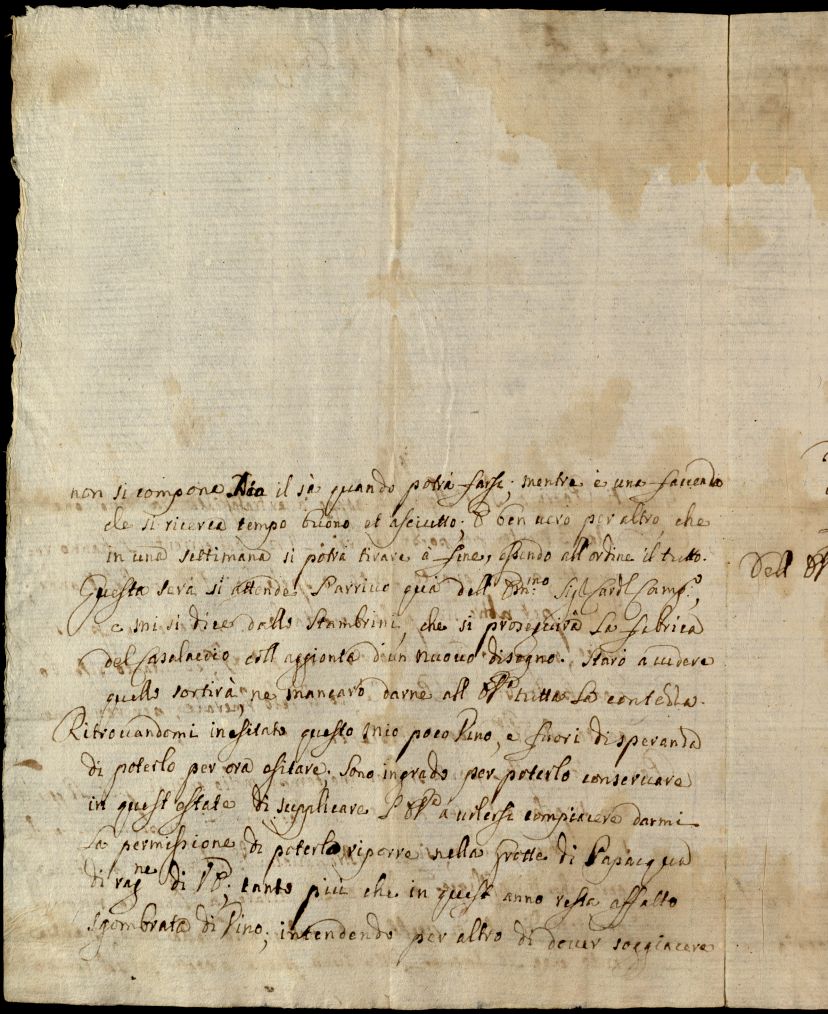 non si compone. Dio il sà quando potrà farsi; mentre è una faccenda
che si ricerca tempo buono et asciutto; è ben vero per altro, che
in una settimana si potrà tirare à fine, essendo all'ordine il tutto.
Questa sera si attende l'arrivo quà dell' Em.mo Sig.r Card.l Camp.o,
e mi si dice dallo Stambrini, che si proseguirà la fabrica
del Casalaccio coll'aggionta d'un nuovo disegno. Starò a vedere
quello sortirà, ne mancarò darne all' tutta la contezza.
Ritrovandomi inesitato questo mio poco Vino, e fuori di speranza
di poterlo per ora esitare, sono in grado per poterlo conservare
in quest'estate di supplicare à volersi compiacere darmi
la permissione di poterlo riporre nella grotta di Papacqua
di rag.ne di tanto più che in quest'anno resta affatto
sgombrata di Vino; intendendo per altro di dover soggiacere
Dell'